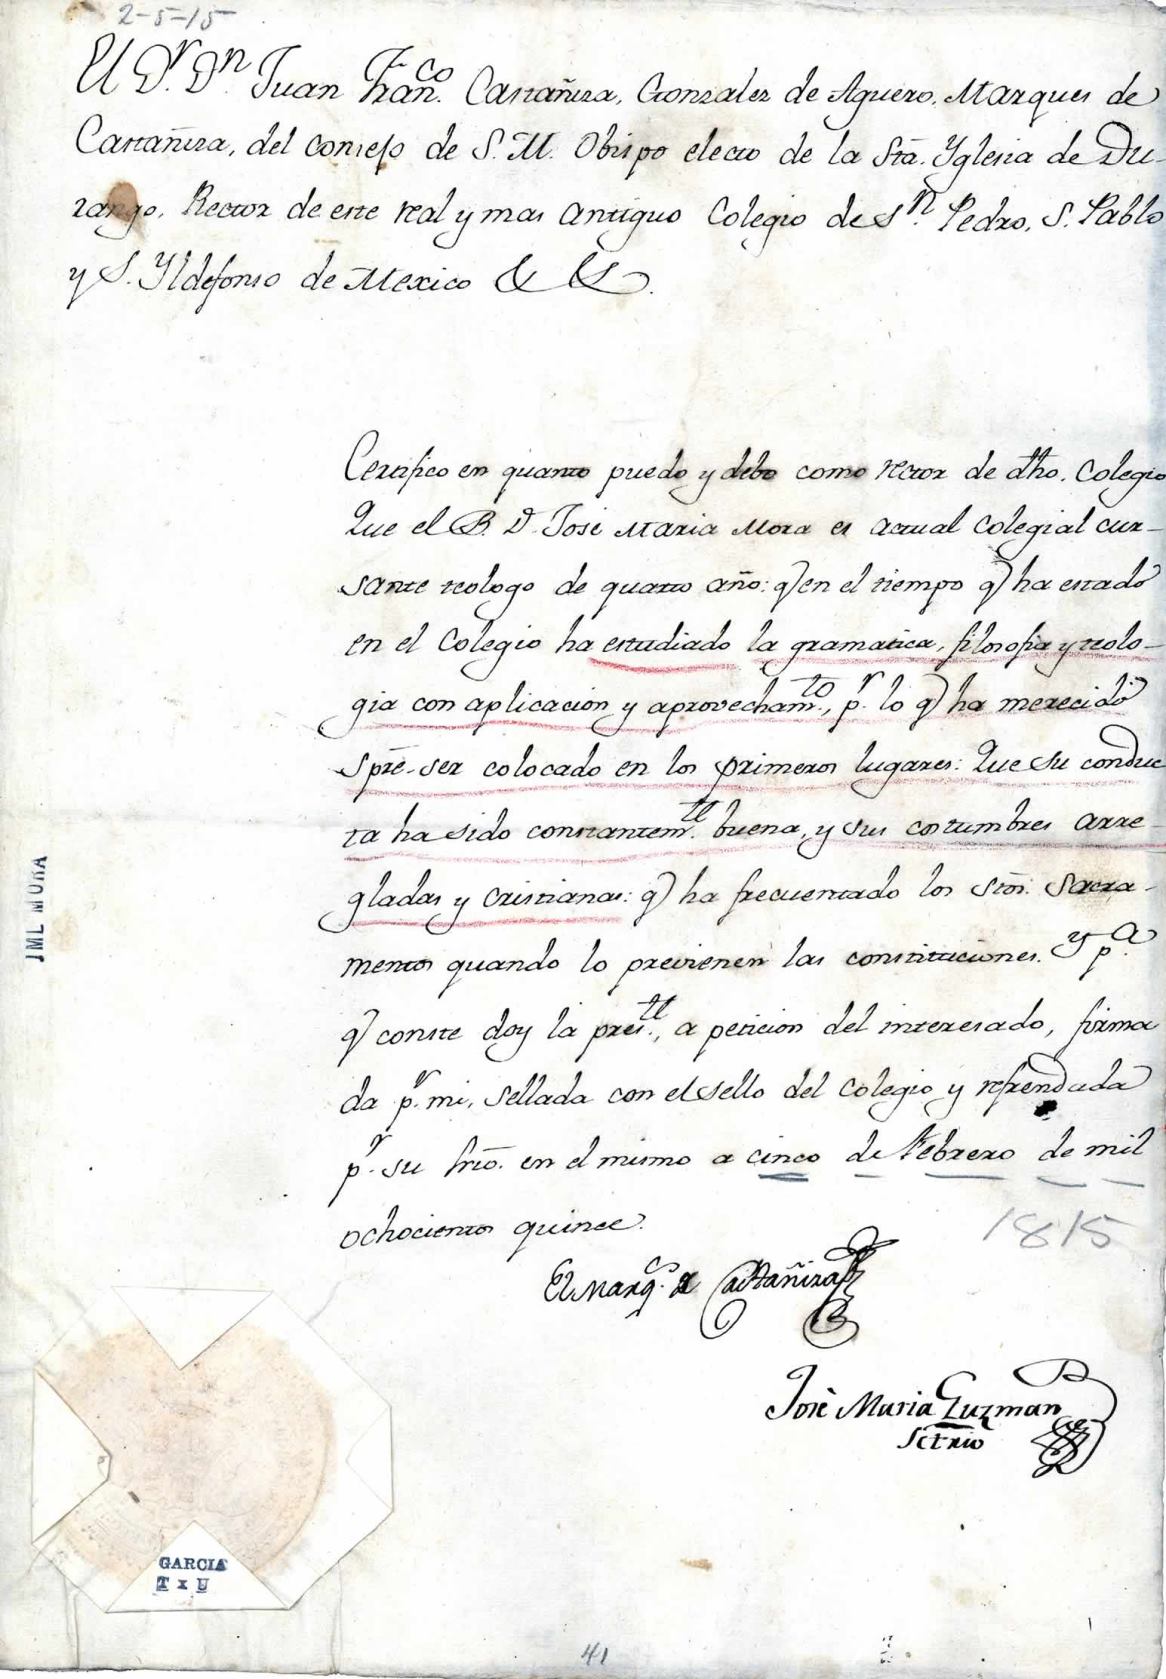 2-5-15
El Dr. Dn. Juan Franco. Castañiza, Gonzalez de Aguero, Marques de
Castañiza, del consejo de S. M. Obispo electo de la Sta. Yglesia de Du-
rango, Rector de este real y mas antiguo Colegio de Sn. Pedro, S. Pablo
y S. Yldefonso de Mexico & &.
Certifico en quanto puedo y debo como rector de dho. Colegio
Que el B. D. José Maria Mora es actual colegial cur-
sante teologo de quarto año: q en el tiempo q ha estado
en el Colegio ha estudiado la gramatica, filosofia y teolo-
gia con aplicacion y aprovechamto., pr. lo q ha merecido
spre. ser colocado en los primeros lugares: Que su conduc
ta ha sido constantemte. buena, y sus costumbres arre-
gladas y cristianas: q ha frecuentado los Stos. Sacra-
mentos quando lo previenen las constituciones. Y pa.
q conste doy la preste., a peticion del interesado, firma
da pr. mi, sellada con el sello del Colegio y refrendada
pr. su srio. en el mismo a cinco de Febrero de mil
ochocientos quince.
1815
El Marqs. de Castañiza
José Maria Guzman
Sctrio
JML MORA
GARCIA
T x U
41